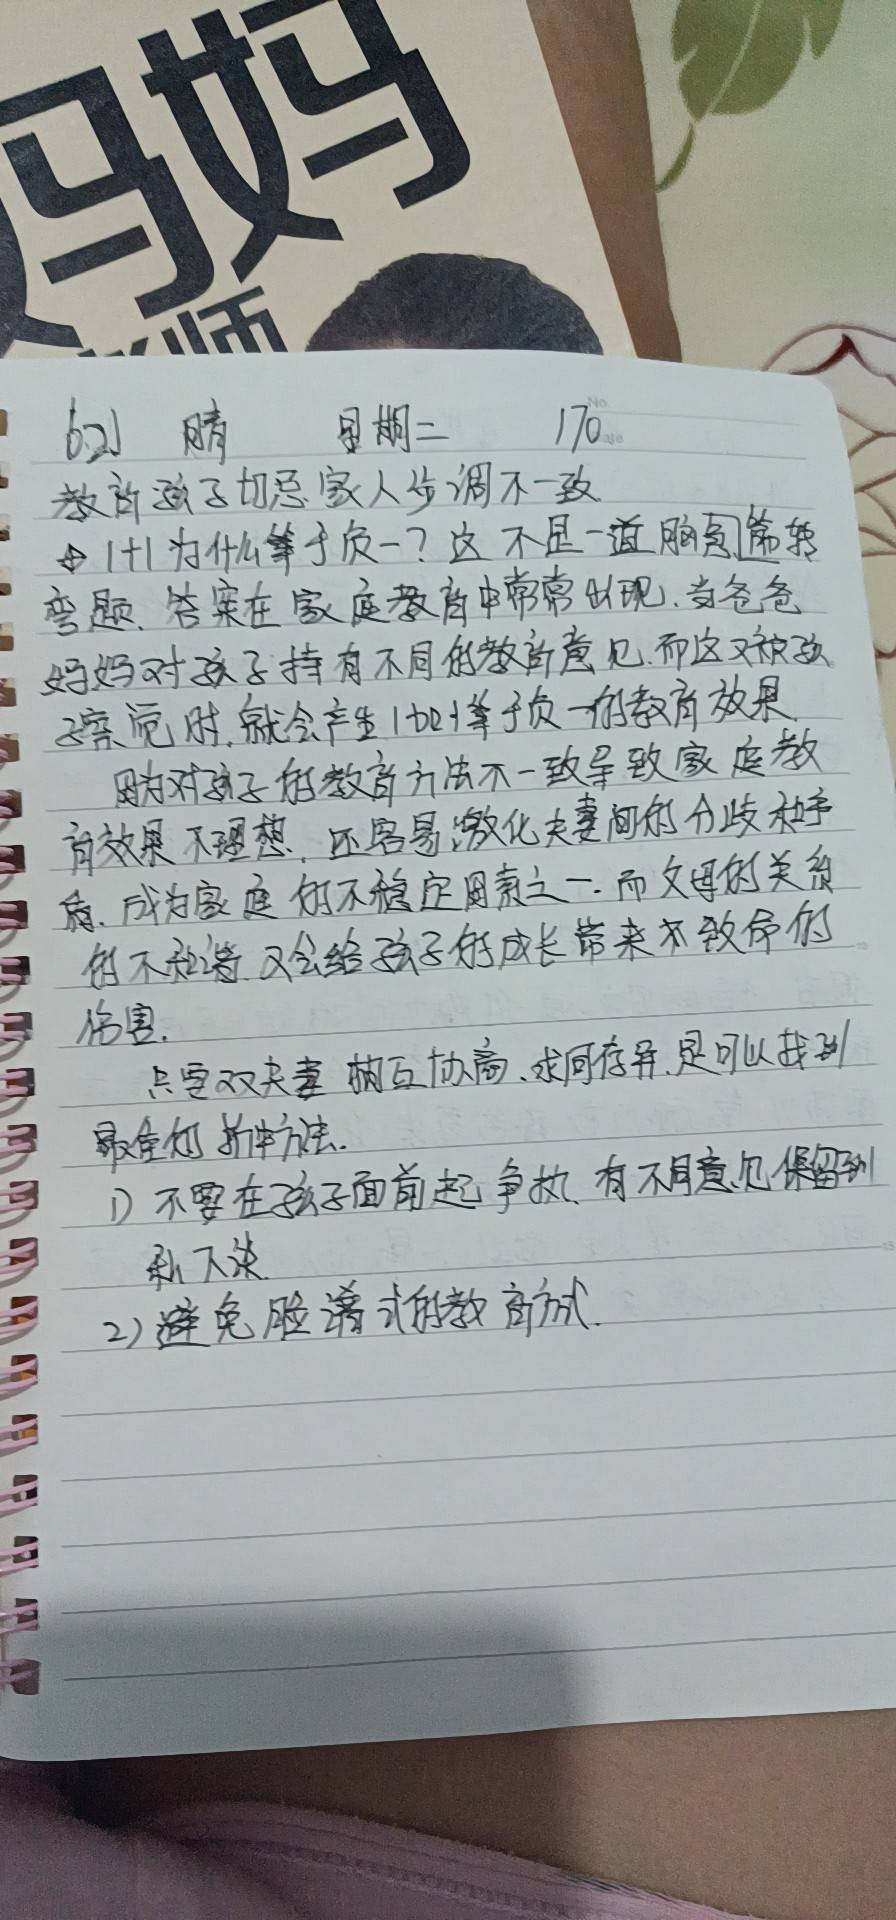 妈妈
老师
6.21 晴 星期二 170
教育孩子切忌家人步调不一致
1+1为什么等于负一？这不是一道脑筋急转
弯题、答案在家庭教育中常常出现、当爸爸
妈妈对孩子持有不同的教育意见.而这又被孩
子察觉时.就会产生1加1等于负一的教育效果.
因为对孩子的教育方法不一致导致家庭教
育效果不理想，还容易激化夫妻间的分歧和矛
盾.成为家庭的不稳定因素之一.而父母的关系
的不和谐.又会给孩子的成长带来不致命的
伤害.
只要双夫妻相互协商、求同存异.是可以找到
最佳的折中方法.
1) 不要在孩子面前起争执、有不同意见保留到
私下谈.
2) 避免脸谱式的教育方式.